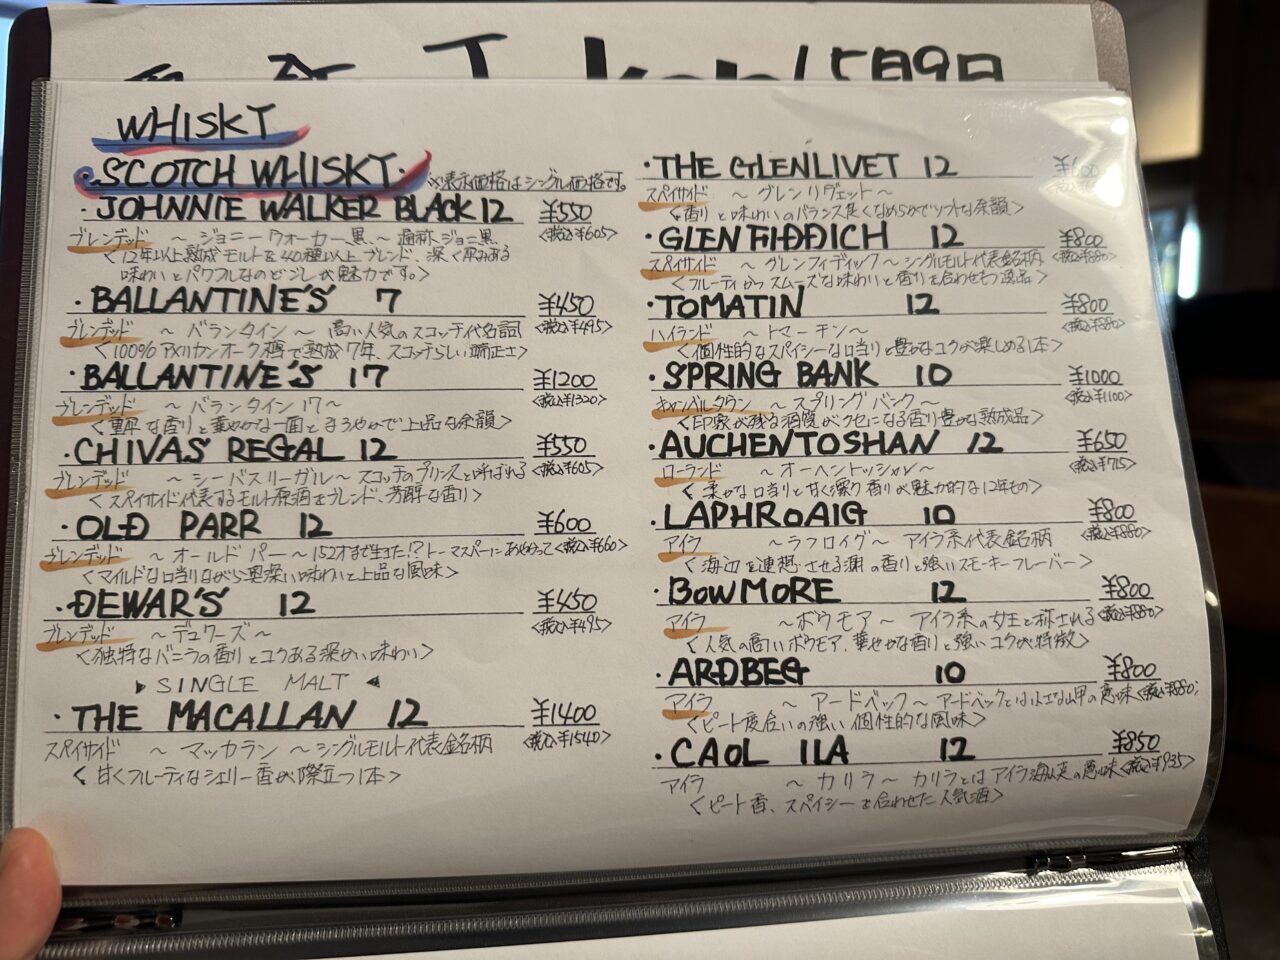 5月9日
WHISKY
・SCOTCH WHISKY・ ※表示価格はシングル価格です。
・JOHNNIE WALKER BLACK 12 ¥550
ブレンデッド ～ ジョニーウォーカー黒 ～ 通称、ジョニ黒 <税込¥605>
<12年以上熟成モルトを40種以上ブレンド、深く厚みある
味わいとパワフルなのどごしが魅力です。>
・BALLANTINE'S 7 ¥450
ブレンデッド ～ バランタイン ～ 高い人気のスコッチ代名詞 <税込¥495>
<100%アメリカンオーク樽で熟成7年、スコッチらしい端正さ>
・BALLANTINE'S 17 ¥1200
ブレンデッド ～ バランタイン17 ～ <税込¥1320>
<重厚な香りと華やかな一面とまろやかで上品な余韻>
・CHIVAS REGAL 12 ¥550
ブレンデッド ～ シーバスリーガル ～ スコッチのプリンスと呼ばれる <税込¥605>
<スペイサイド代表するモルト原酒をブレンド、芳醇な香り>
・OLD PARR 12 ¥600
ブレンデッド ～ オールドパー ～ 152才まで生きた!?トーマスパーにあやかって <税込¥660>
<マイルドな口当りながら奥深い味わいと上品な風味>
・DEWAR'S 12 ¥450
ブレンデッド ～ デュワーズ ～ <税込¥495>
<独特なバニラの香りとコクある深めい味わい>
▶ SINGLE MALT ◀
・THE MACALLAN 12 ¥1400
スペイサイド ～ マッカラン ～ シングルモルト代表銘柄 <税込¥1540>
<甘くフルーティなシェリー香が際立つ1本>
・THE GLENLIVET 12 ¥600
スペイサイド ～ グレンリヴェット ～
<香りと味わいのバランス良くなめらかでソフトな余韻>
・GLENFIDDICH 12 ¥800
スペイサイド ～ グレンフィディック ～ シングルモルト代表銘柄 <税込¥880>
<フルーティかつスムーズな味わいと香りを合わせもつ逸品>
・TOMATIN 12 ¥800
ハイランド ～ トマーチン ～ <税込¥880>
<個性的なスパイシーな口当りと豊かなコクが楽しめる1本>
・SPRING BANK 10 ¥1000
キャンベルタウン ～ スプリングバンク ～ <税込¥1100>
<印象が残る酒質がクセになる香り豊かな熟成品>
・AUCHENTOSHAN 12 ¥650
ローランド ～ オーヘントッシャン ～ <税込¥715>
<柔かな口当りと甘く深り香りが魅力的な12年もの>
・LAPHROAIG 10 ¥800
アイラ ～ ラフロイグ ～ アイラ系代表銘柄 <税込¥880>
<海辺を連想させる潮の香りと強いスモーキーフレーバー>
・BOWMORE 12 ¥800
アイラ ～ ボウモア ～ アイラ系の女王と称される <税込¥880>
<人気の高いボウモア、華やかな香りと強いコクが特徴>
・ARDBEG 10 ¥800
アイラ ～ アードベック ～ アードベックとは小さな岬の意味 <税込¥880>
<ピート度合いの強い個性的な風味>
・CAOL ILA 12 ¥850
アイラ ～ カリラ ～ カリラとはアイラ海峡の意味 <税込¥935>
<ピート香、スパイシーを合わせた人気酒>